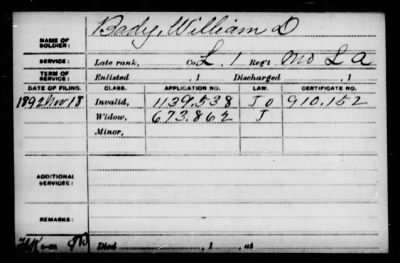 NAME OF SOLDIER: Bady, William D
SERVICE: Late rank, Co. L, 1 Reg't Mo L A
TERM OF SERVICE: Enlisted , 1 Discharged , 1
DATE OF FILING. CLASS. APPLICATION NO. LAW. CERTIFICATE NO.
1892 Nov 18 Invalid, 1139.538 J O 910.152
Widow, 673.862 J
Minor,
ADDITIONAL SERVICES:
REMARKS:
Died , 1 , at